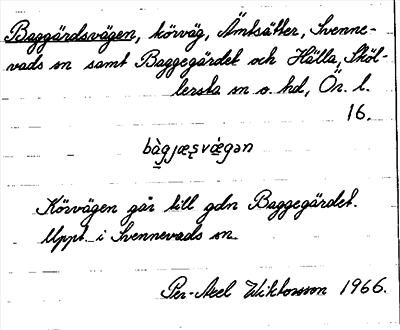 Baggärdsvägen, körväg, Åmtsätter, Svenne-
vads sn samt Baggegärdet och Hälla, Sköl-
lersta sn o. hd, Ör. l.
16.
Körvägen går till gdn Baggegärdet.
Uppt. i Svennevads sn
Per-Axel Wiktorsson 1966.